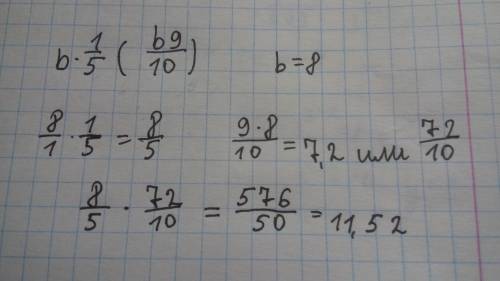 b · 1/5 ( b9/10 )   b = 8
8/1 · 1/5 = 8/5   9·8/10 = 7,2 или 72/10
8/5 · 72/10 = 576/50 = 11,52